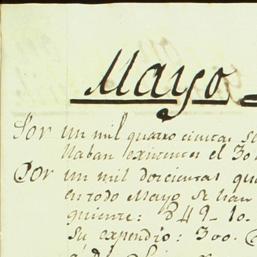 Mayo
Por un mil quatro cientas se
llaban existentes el 30
Por un mil docientas qu
en todo Mayo se han
guiente: 849-10.
su expendio: 300.